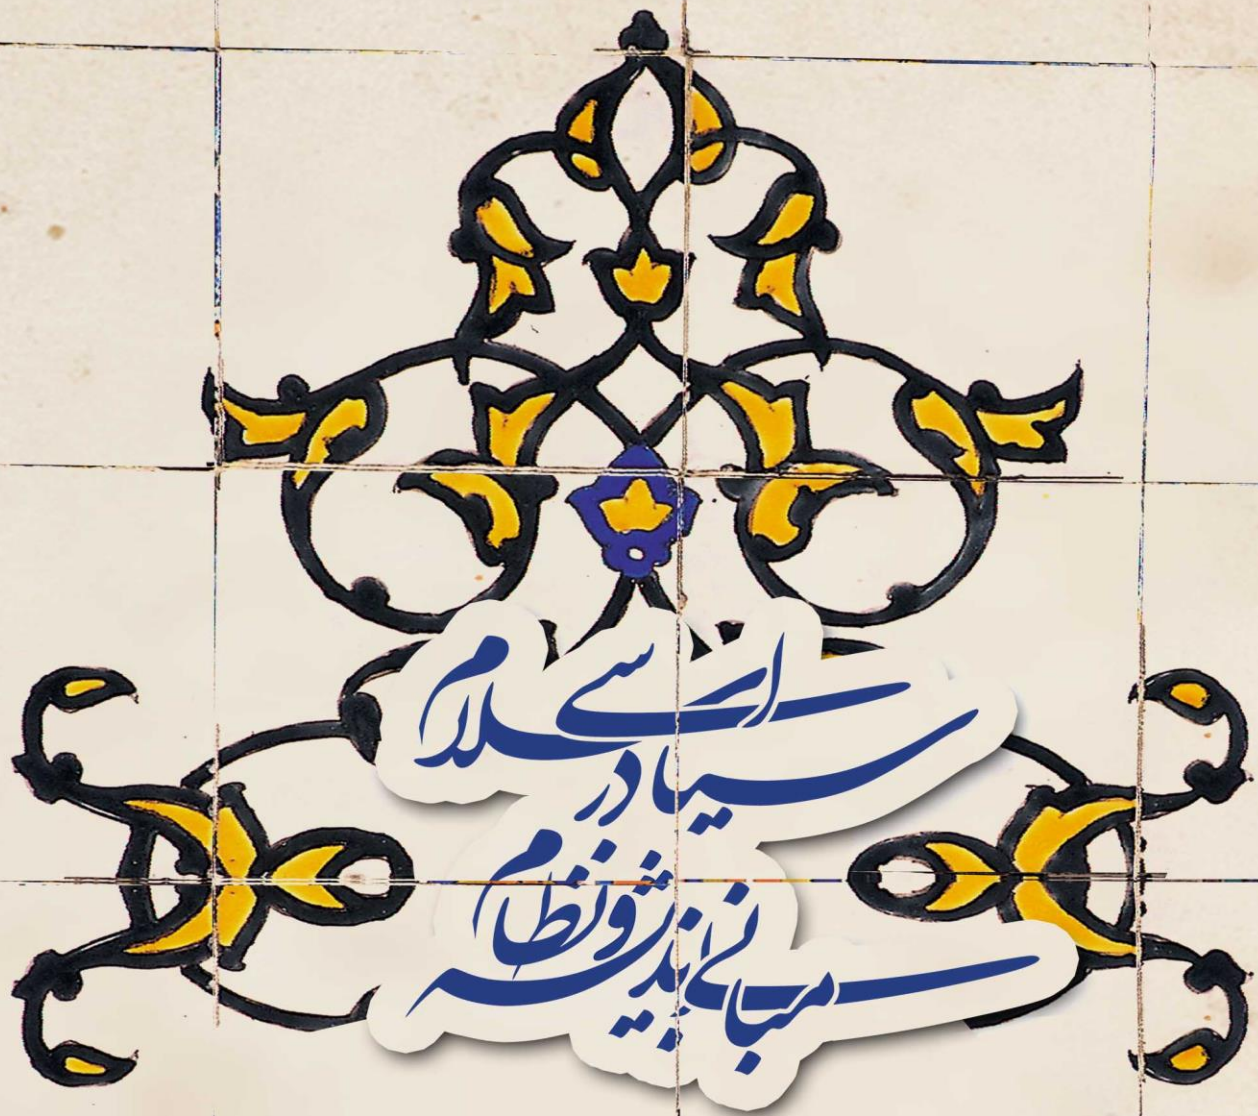 مبانی اندیشه و نظام
سیاسی در اسلام